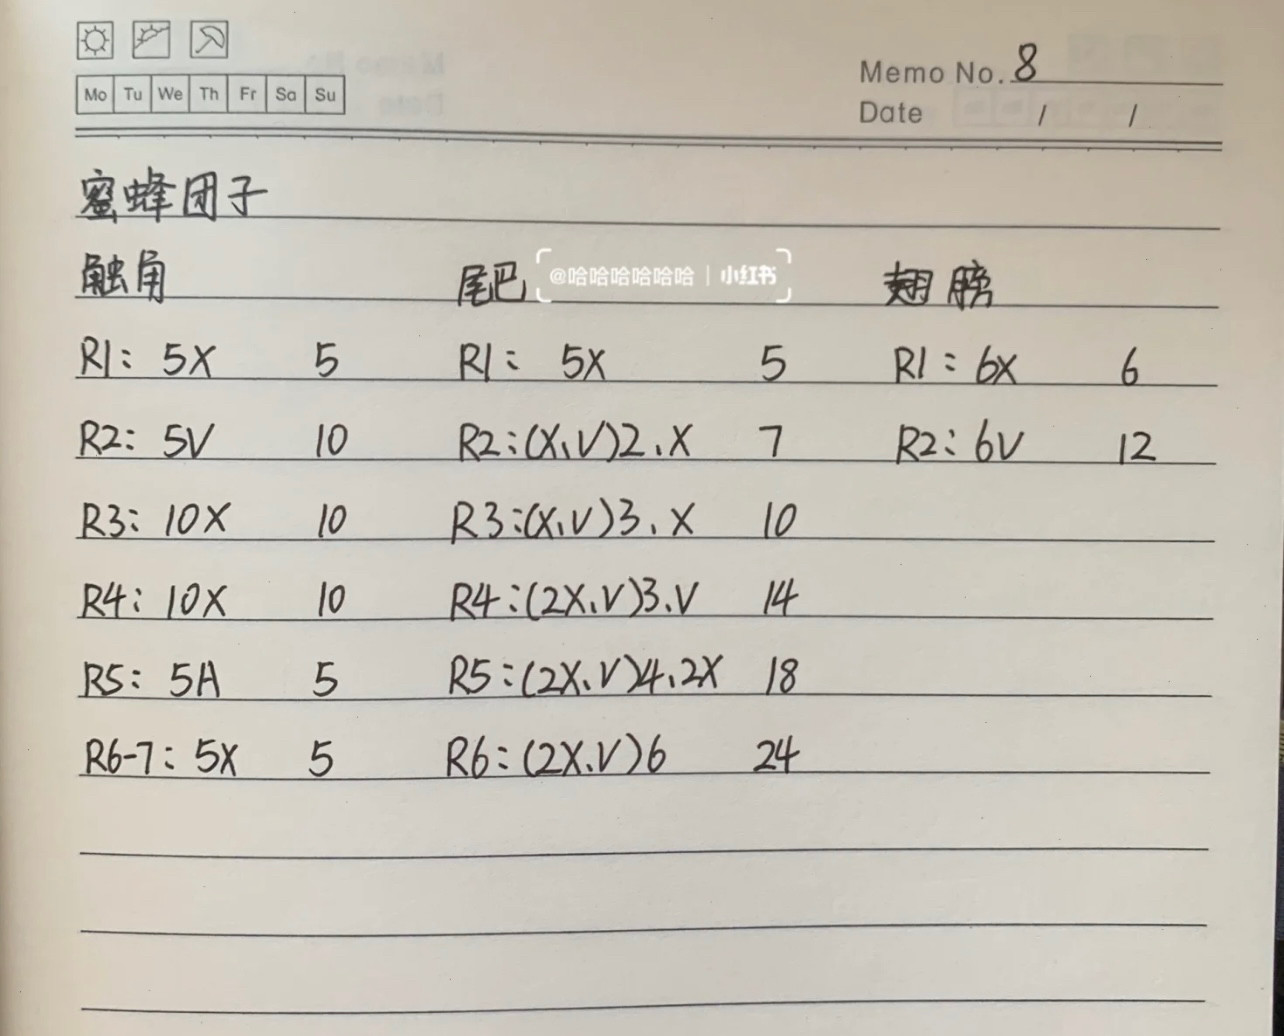 Memo No. 8
Mo Tu We Th Fr Sa Su
Date / /
蜜蜂团子
触角 尾巴 @哈哈哈哈哈哈 | 小红书 翅膀
R1: 5X 5 R1: 5X 5 R1: 6X 6
R2: 5V 10 R2:(X,V)2、X 7 R2: 6V 12
R3: 10X 10 R3:(X,V)3、X 10
R4: 10X 10 R4:(2X,V)3、V 14
R5: 5A 5 R5:(2X,V)4、2X 18
R6-7: 5X 5 R6:(2X,V)6 24